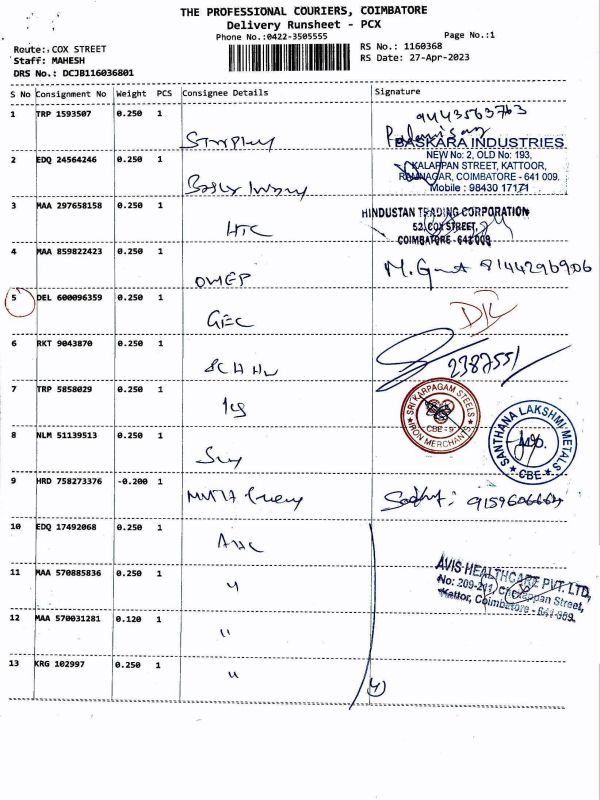 THE PROFESSIONAL COURIERS, COIMBATORE
Delivery Runsheet - PCX
Phone No.:0422-3505555
Page No.:1
Route: COX STREET
Staff: MAHESH
DRS No.: DCJB116036801
RS No.: 1160368
RS Date: 27-Apr-2023
S No Consignment No Weight PCS Consignee Details Signature
1 TRP 1593507 0.250 1
9443563763
BASKARA INDUSTRIES
NEW No: 2, OLD No: 193,
KALAPPAN STREET, KATTOOR,
RAMNAGAR, COIMBATORE - 641 009.
Mobile : 98430 17171
2 EDQ 24564246 0.250 1
3 MAA 297658158 0.250 1 HTC
HINDUSTAN TRADING CORPORATION
52, COX STREET,
COIMBATORE - 641 009
4 MAA 859822423 0.250 1 OMEP
8144296906
5 DEL 600096359 0.250 1 GEC
6 RKT 9043870 0.250 1
2387551
7 TRP 5858029 0.250 1
SRI KARPAGAM STEELS
CBE - 9
IRON MERCHANTS
8 NLM 51139513 0.250 1
SANTHANA LAKSHMI METALS
CBE
9 HRD 758273376 -0.200 1
9159606664
10 EDQ 17492068 0.250 1 AHC
11 MAA 570885836 0.250 1 "
AVIS HEALTHCARE PVT. LTD,
No: 209-211, Street,
Kattor, Coimbatore - 641 009.
12 MAA 570031281 0.120 1 "
13 KRG 102997 0.250 1 "
4)